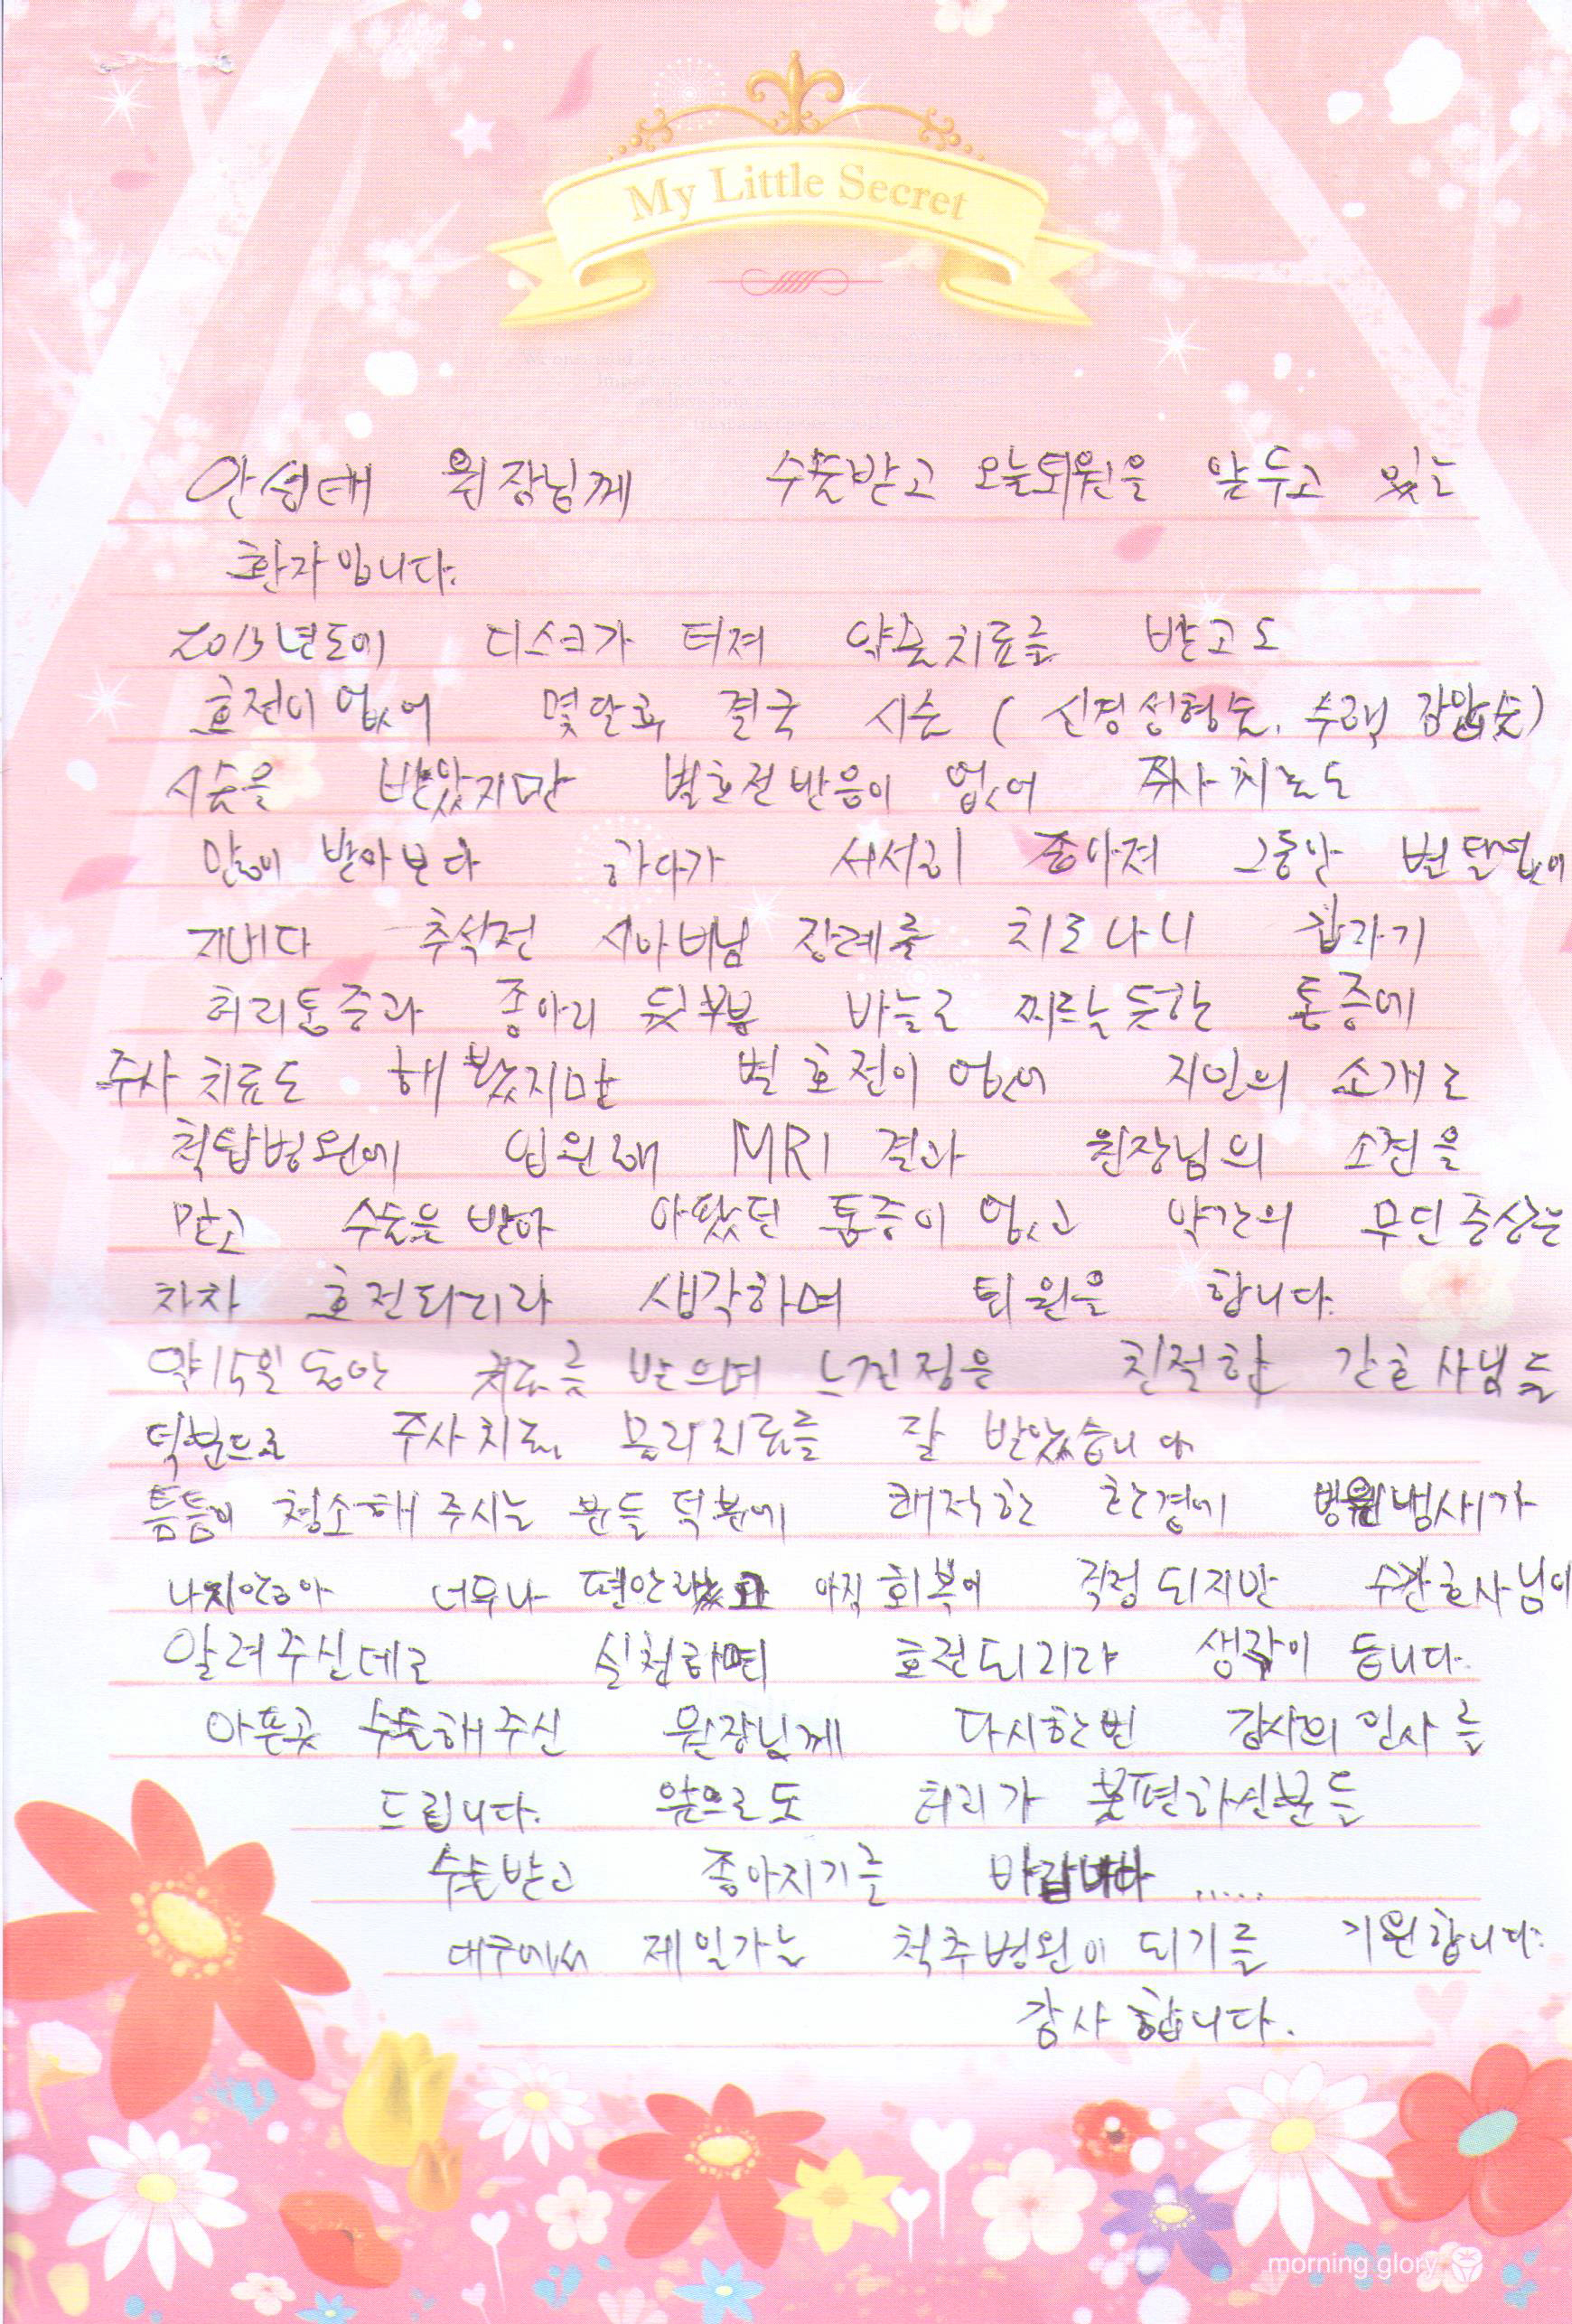 My Little Secret
안성태 원장님께 수술받고 오늘퇴원을 앞두고 있는
환자입니다.
2013년도에 디스크가 터져 약물치료를 받고도
호전이 없어 몇달후 결국 시술 ( 신경성형술, 수핵 감압술)
시술을 받았지만 별호전반응이 없어 주사치료도
많이 받아보다 하다가 서서히 좋아져 그동안 별탈없이
지내다 추석전 시아버님 장례를 치르나니 갑자기
허리통증과 종아리 뒷부분 바늘로 찌르는듯한 통증에
주사치료도 해봤지만 별호전이 없어 지인의 소개로
척탑병원에 입원해 MRI 결과 원장님의 소견을
믿고 수술을 받아 아팠던 통증이 없고 약간의 무딘증상은
차차 호전되리라 생각하며 퇴원을 합니다.
약15일동안 치료를 받으며 느낀점은 친절한 간호사님들
덕분으로 주사치료, 물리치료를 잘 받았습니다
틈틈이 청소해주시는 분들덕분에 쾌적한 환경에 병원냄새가
나지안아 너무나 편안했고 아직 회복이 걱정되지만 수간호사님이
알려주신데로 실천하면 호전되리라 생각이 듭니다.
아픈곳 수술해주신 원장님께 다시한번 감사의 인사를
드립니다. 앞으로도 허리가 불편하신분들
수술받고 좋아지기를 바랍니다 .....
대구에서 제일가는 척추병원이 되기를 기원합니다.
감사합니다.
morning glory